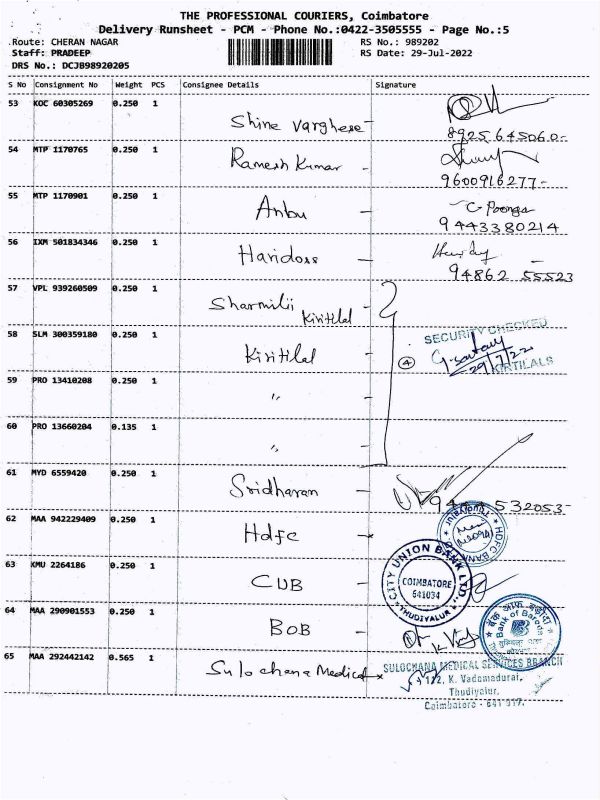 THE PROFESSIONAL COURIERS, Coimbatore
Delivery Runsheet - PCM - Phone No.:0422-3505555 - Page No.:5
Route: CHERAN NAGAR RS No.: 989202
Staff: PRADEEP RS Date: 29-Jul-2022
DRS No.: DCJB98920205
S No Consignment No Weight PCS Consignee Details Signature
53 KOC 60305269 0.250 1 Shine Varghese
8925645060
54 MTP 1170765 0.250 1 Ramesh Kumar
9600916277
55 MTP 1170901 0.250 1 Anbu C Poonga
9443380214
56 IXM 501834346 0.250 1 Haridoss
94862 55523
57 VPL 939260509 0.250 1 Sharmilii
Kiritilal
58 SLM 300359180 0.250 1 Kiritilal 4
SECURITY CHECKED
29/7/22
KIRTILALS
59 PRO 13410208 0.250 1 "
60 PRO 13660204 0.135 1 "
61 MYD 6559420 0.250 1 Sridharan
532053
62 MAA 942229409 0.250 1 Hdfc
HDFC BANK
63 KMU 2264186 0.250 1 CUB
CITY UNION BANK LTD.
COIMBATORE
641034
THUDIYALUR
64 MAA 290901553 0.250 1 BOB
Bank of Baroda
65 MAA 292442142 0.565 1 Sulochana Medical
SULOCHANA MEDICAL SERVICES BRANCH
K. Vadamadurai,
Thudiyalur,
Coimbatore - 641 017.